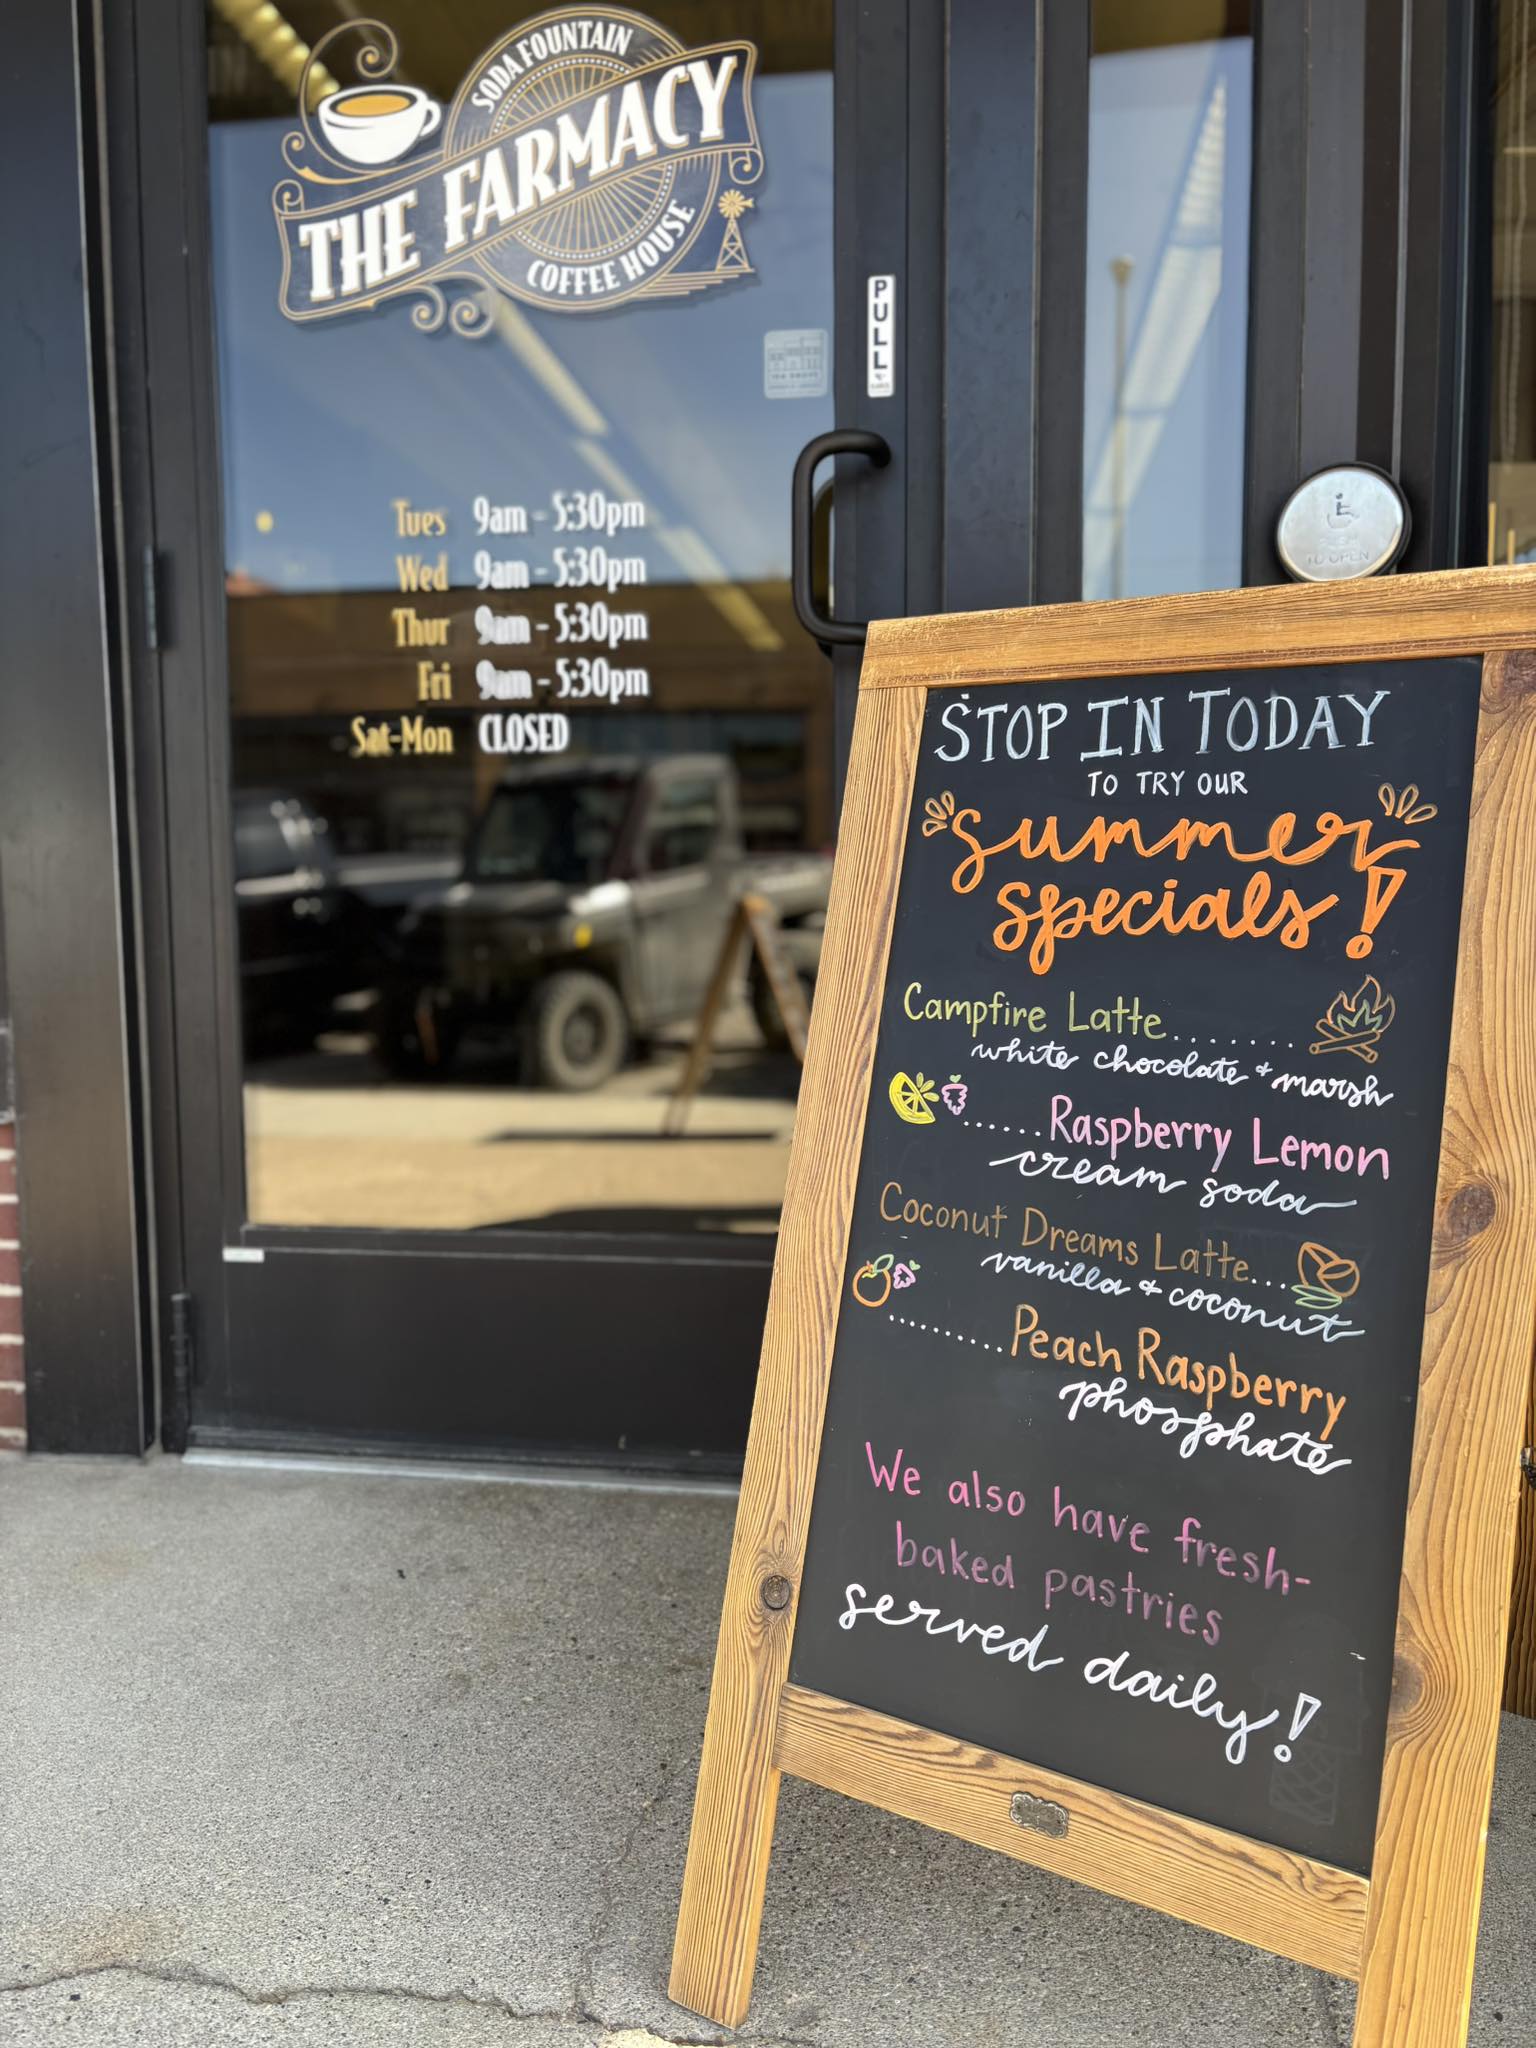 SODA FOUNTAIN
THE FARMACY
COFFEE HOUSE
PULL
Tues 9am - 5:30pm
Wed 9am - 5:30pm
Thur 9am - 5:30pm
Fri 9am - 5:30pm
Sat-Mon CLOSED
PUSH
TO OPEN
STOP IN TODAY
TO TRY OUR
summer
specials!
Campfire Latte........
white chocolate + marsh
......Raspberry Lemon
cream soda
Coconut Dreams Latte...
vanilla + coconut
.........Peach Raspberry
phosphate
We also have fresh-
baked pastries
served daily!